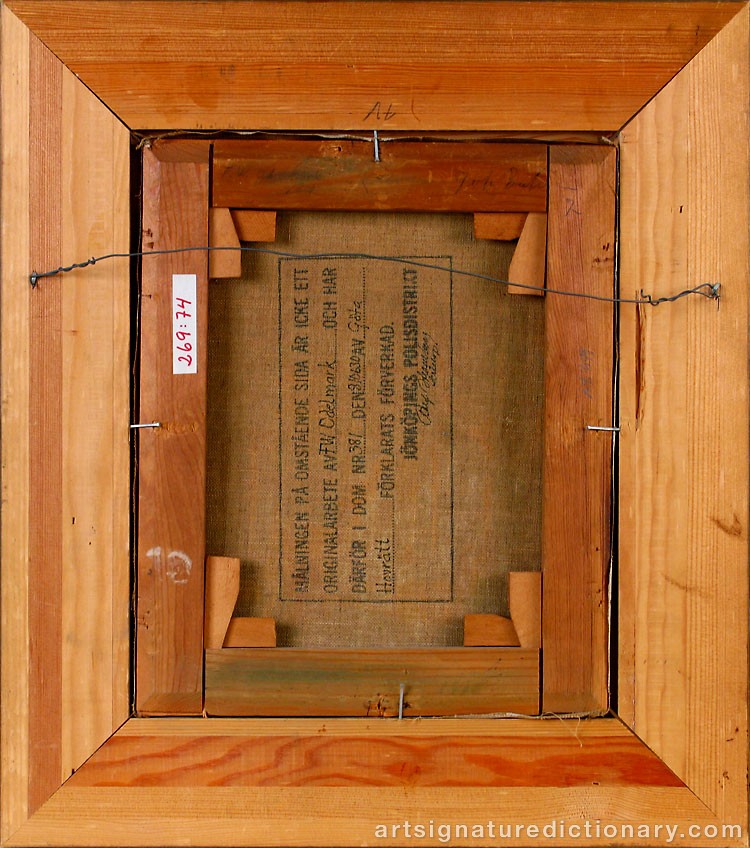 MÅLNINGEN PÅ OMSTÅENDE SIDA ÄR ICKE ETT
ORIGINALARBETE AV F.W. Odelmark OCH HAR
DÄRFÖR I DOM NR 381 DEN AV Göta
Hovrätt FÖRKLARATS FÖRVERKAD.
JÖNKÖPINGS POLISDISTRIKT
269:74
artsignaturedictionary.com